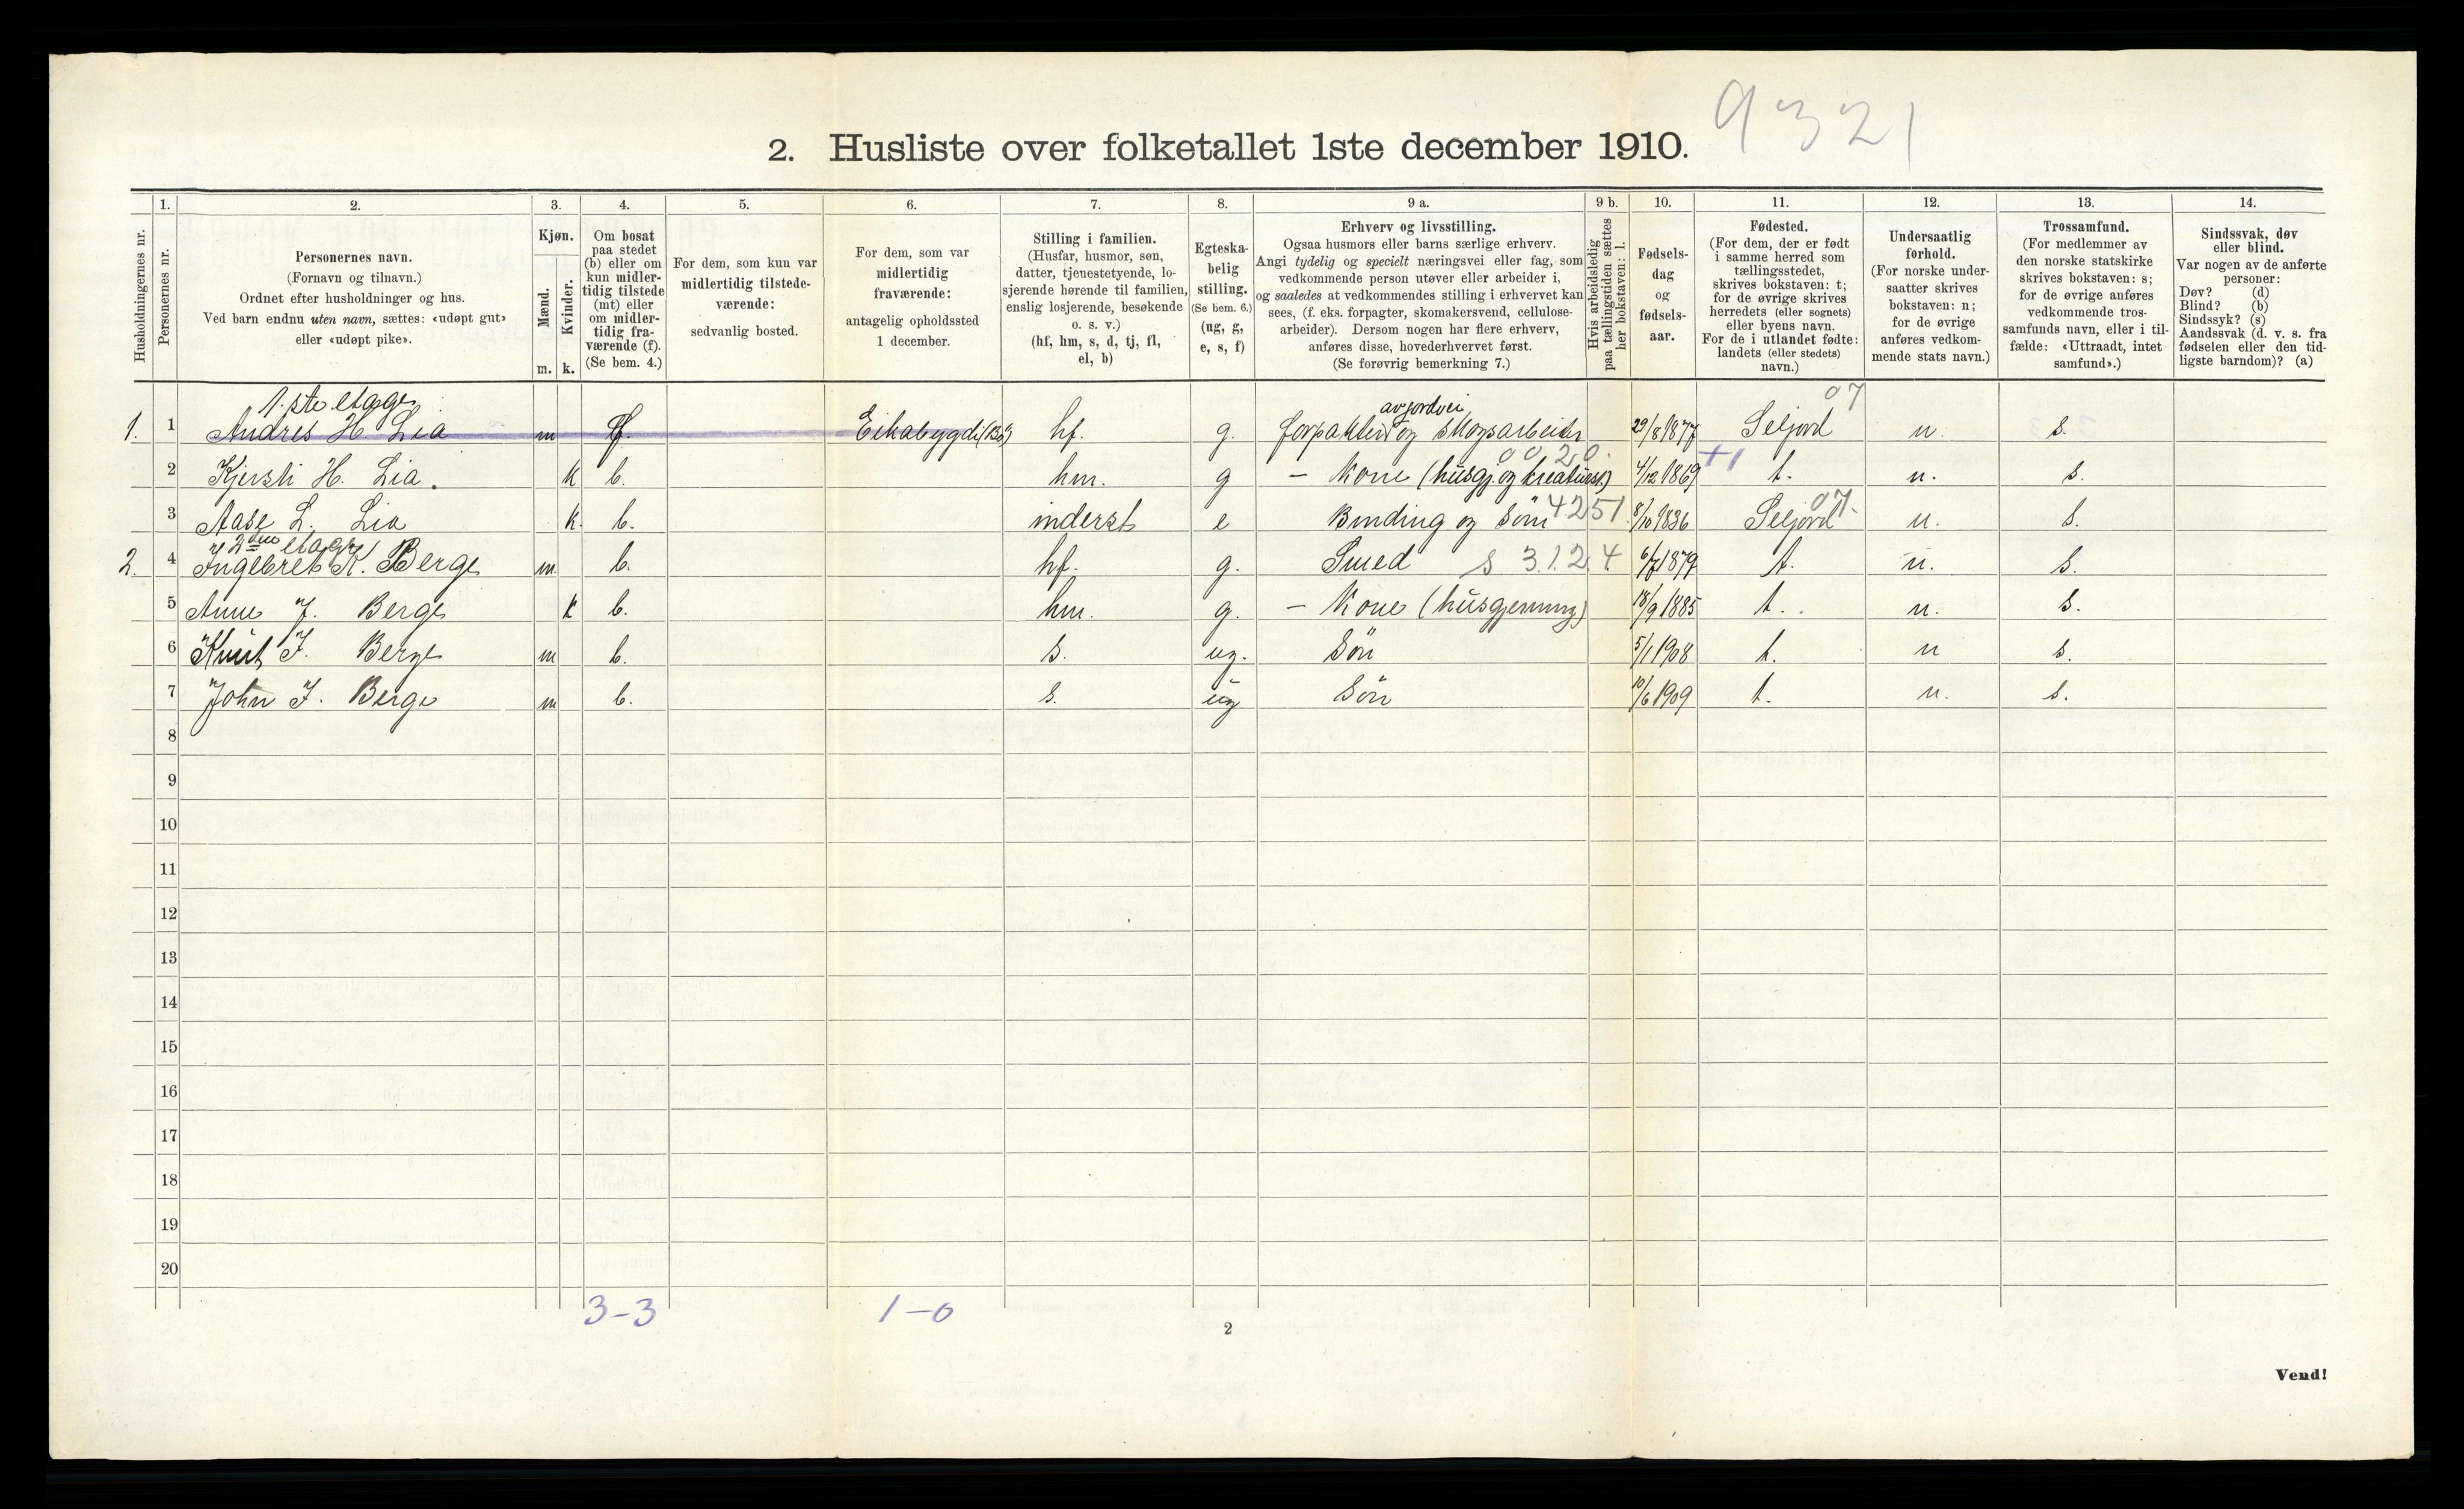 9321
2. Husliste over folketallet 1ste december 1910.
Husholdningernes nr.
1.
Personernes nr.
2.
Personernes navn.
(Fornavn og tilnavn.)
Ordnet efter husholdninger og hus.
Ved barn endnu uten navn, sættes: «udøpt gut»
eller «udøpt pike».
3.
Kjøn.
Mænd.
Kvinder.
m. k.
4.
Om bosat
paa stedet
(b) eller om
kun midler-
tidig tilstede
(mt) eller
om midler-
tidig fra-
værende (f).
(Se bem. 4.)
5.
For dem, som kun var
midlertidig tilstede-
værende:
sedvanlig bosted.
6.
For dem, som var
midlertidig
fraværende:
antagelig opholdssted
1 december.
7.
Stilling i familien.
(Husfar, husmor, søn,
datter, tjenestetyende, lo-
sjerende hørende til familien,
enslig losjerende, besøkende
o. s. v.)
(hf, hm, s, d, tj, fl,
el, b)
8.
Egteska-
belig
stilling.
(Se bem. 6.)
(ug, g,
e, s, f)
9 a.
Erhverv og livsstilling.
Ogsaa husmors eller barns særlige erhverv.
Angi tydelig og specielt næringsvei eller fag, som
vedkommende person utøver eller arbeider i,
og saaledes at vedkommendes stilling i erhvervet kan
sees, (f. eks. forpagter, skomakersvend, cellulose-
arbeider). Dersom nogen har flere erhverv,
anføres disse, hovederhvervet først.
(Se forøvrig bemerkning 7.)
9 b.
Hvis arbeidsledig
paa tællingstiden sættes
her bokstaven: l.
10.
Fødsels-
dag
og
fødsels-
aar.
11.
Fødested.
(For dem, der er født
i samme herred som
tællingsstedet,
skrives bokstaven: t;
for de øvrige skrives
herredets (eller sognets)
eller byens navn.
For de i utlandet fødte:
landets (eller stedets)
navn.)
12.
Undersaatlig
forhold.
(For norske under-
saatter skrives
bokstaven: n;
for de øvrige
anføres vedkom-
mende stats navn.)
13.
Trossamfund.
(For medlemmer av
den norske statskirke
skrives bokstaven: s;
for de øvrige anføres
vedkommende tros-
samfunds navn, eller i til-
fælde: «Uttraadt, intet
samfund».)
14.
Sindssvak, døv
eller blind.
Var nogen av de anførte
personer:
Døv? (d)
Blind? (b)
Sindssyk? (s)
Aandssvak (d. v. s. fra
fødselen eller den tid-
ligste barndom)? (a)
1.ste etage
av jordvei 07
1. 1 Andres H. Lia m f. Eikabygdi (Bö) hf. g. forpakter og skogsarbeider 29/8 1877 Seljord n. s.
0020. +1
2 Kjersti H. Lia. k b. hm. g – Kone (husgj. og kreaturst.) 4/12 1869 t. n. s.
07.
3 Aase L. Lia k. b. inderst e Binding og söm 4251 8/10 1836 Seljord n. s.
2den etage
2. 4 Ingebret K. Berge m. b. hf. g. Smed s 3.1.2.4. 6/7 1879 t. n. s.
5 Anne J. Berge k b. hm. g. – Kone (husgjerning) 18/9 1885 t. n. s.
6 Knut I. Berge m b. s. ug. Sön 5/1 1908 t. n s.
7 John I. Berge m b. s. ug Sön 10/6 1909 t. n. s.
8
9
10
11
12
13
14
15
16
17
18
19
20
3–3 1–0
2
Vend!